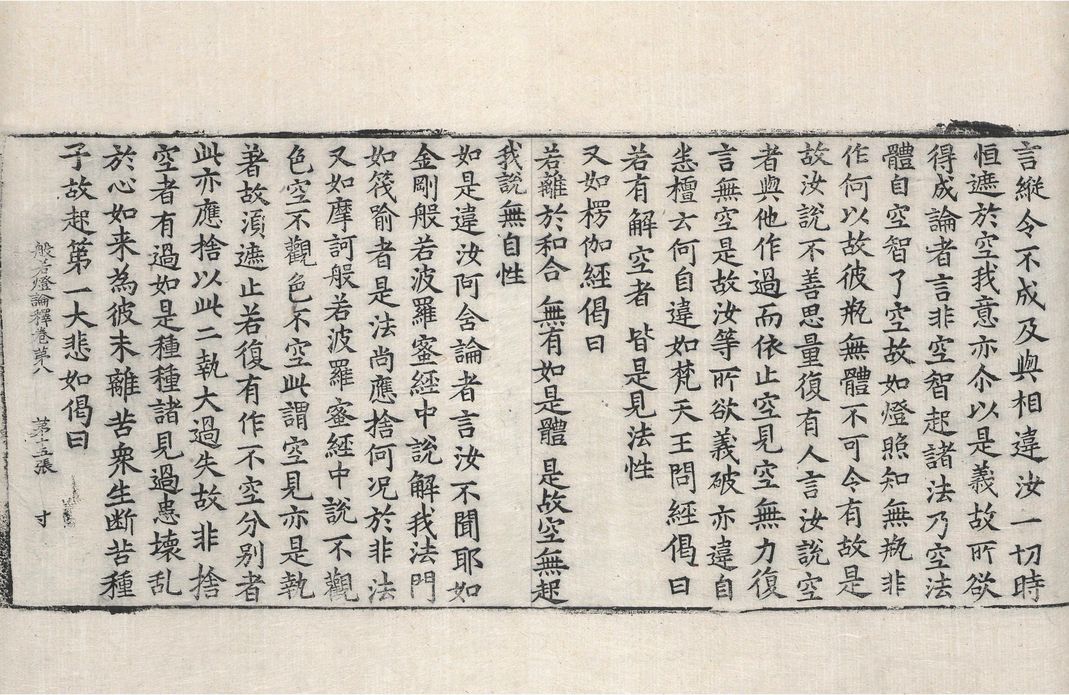 言縱令不成及與相違汝一切時
恒遮於空我意亦尒以是義故所欲
得成論者言非空智起諸法乃空法
體自空智了空故如燈照知無瓶非
作何以故彼瓶無體不可令有故是
故汝說不善思量復有人言汝說空
者與他作過而依止空見空無力復
言無空是故汝等所欲義破亦違自
悉檀云何自違如梵天王問經偈曰
若有解空者 皆是見法性
又如楞伽經偈曰
若離於和合 無有如是體 是故空無起
我說無自性
如是違汝阿含論者言汝不聞耶如
金剛般若波羅蜜經中說解我法門
如筏喻者是法尚應捨何況於非法
又如摩訶般若波羅蜜經中說不觀
色空不觀色不空此謂空見亦是執
著故湏遮止若復有作不空分別者
此亦應捨以此二執大過失故非捨
空者有過如是種種諸見過患壞亂
於心如来為彼未離苦衆生断苦種
子故起第一大悲如偈曰
般若燈論釋卷苐八 苐十五張 寸